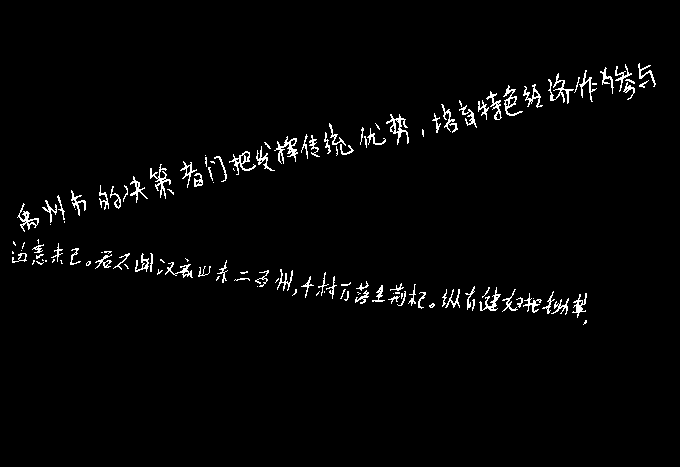 禹州市的决策者们把发挥传统优势,培育特色经济作为参与
边意未已。君不闻汉家山东二百州,千村万落生荆杞。纵有健妇把锄犁,